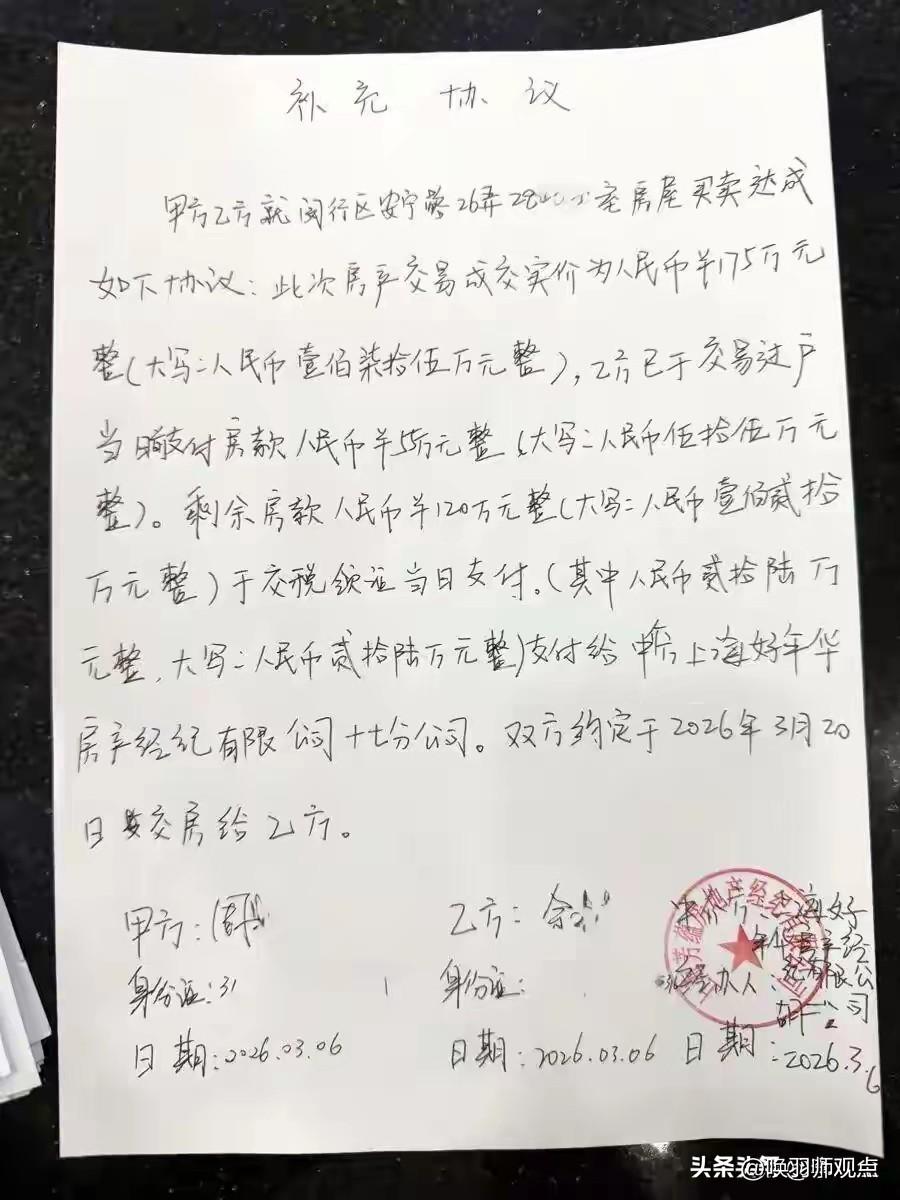 补充 协议
甲方乙方就闵行区安宁路26弄28 室房屋买卖达成
如下协议：此次房产交易成交实价为人民币￥175万元
整（大写：人民币壹佰柒拾伍万元整），乙方已于交易过户
当日支付房款人民币￥55万元整（大写：人民币伍拾伍万元
整）。剩余房款人民币￥120万元整（大写：人民币壹佰贰拾
万元整）于交税领证当日支付。（其中人民币贰拾陆万
元整，大写：人民币贰拾陆万元整）支付给 上海好年华
房产经纪有限公司十七分公司。双方约定于2026年3月20
日 交房给乙方。
甲方：周
乙方：余
中介方：上海好
年华房产经
纪有限公
司
身份证：31
身份证：
经办人：胡
日期：2026.03.06
日期：2026.03.06
日期：2026.3.6
房地产经纪有限
头条 @焕羽师观点